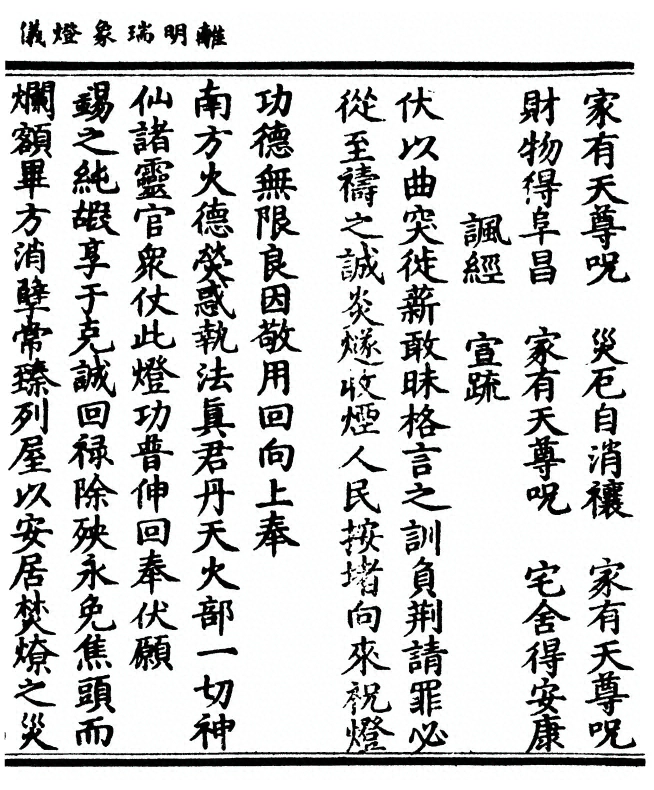 離明瑞象燈儀
家有天尊呪　災厄自消禳　家有天尊呪
財物得阜昌　家有天尊呪　宅舍得安康
諷經　宣疏
伏以曲突徙薪敢昧格言之訓負荆請罪必
從至禱之誠炎燧收煙人民按堵向來祝燈
功德無限良因敬用回向上奉
南方火德熒惑執法眞君丹天火部一切神
仙諸靈官衆仗此燈功普伸回奉伏願
錫之純嘏享于克誠回祿除殃永免焦頭而
爛額畢方消孽常臻列屋以安居焚燎之災